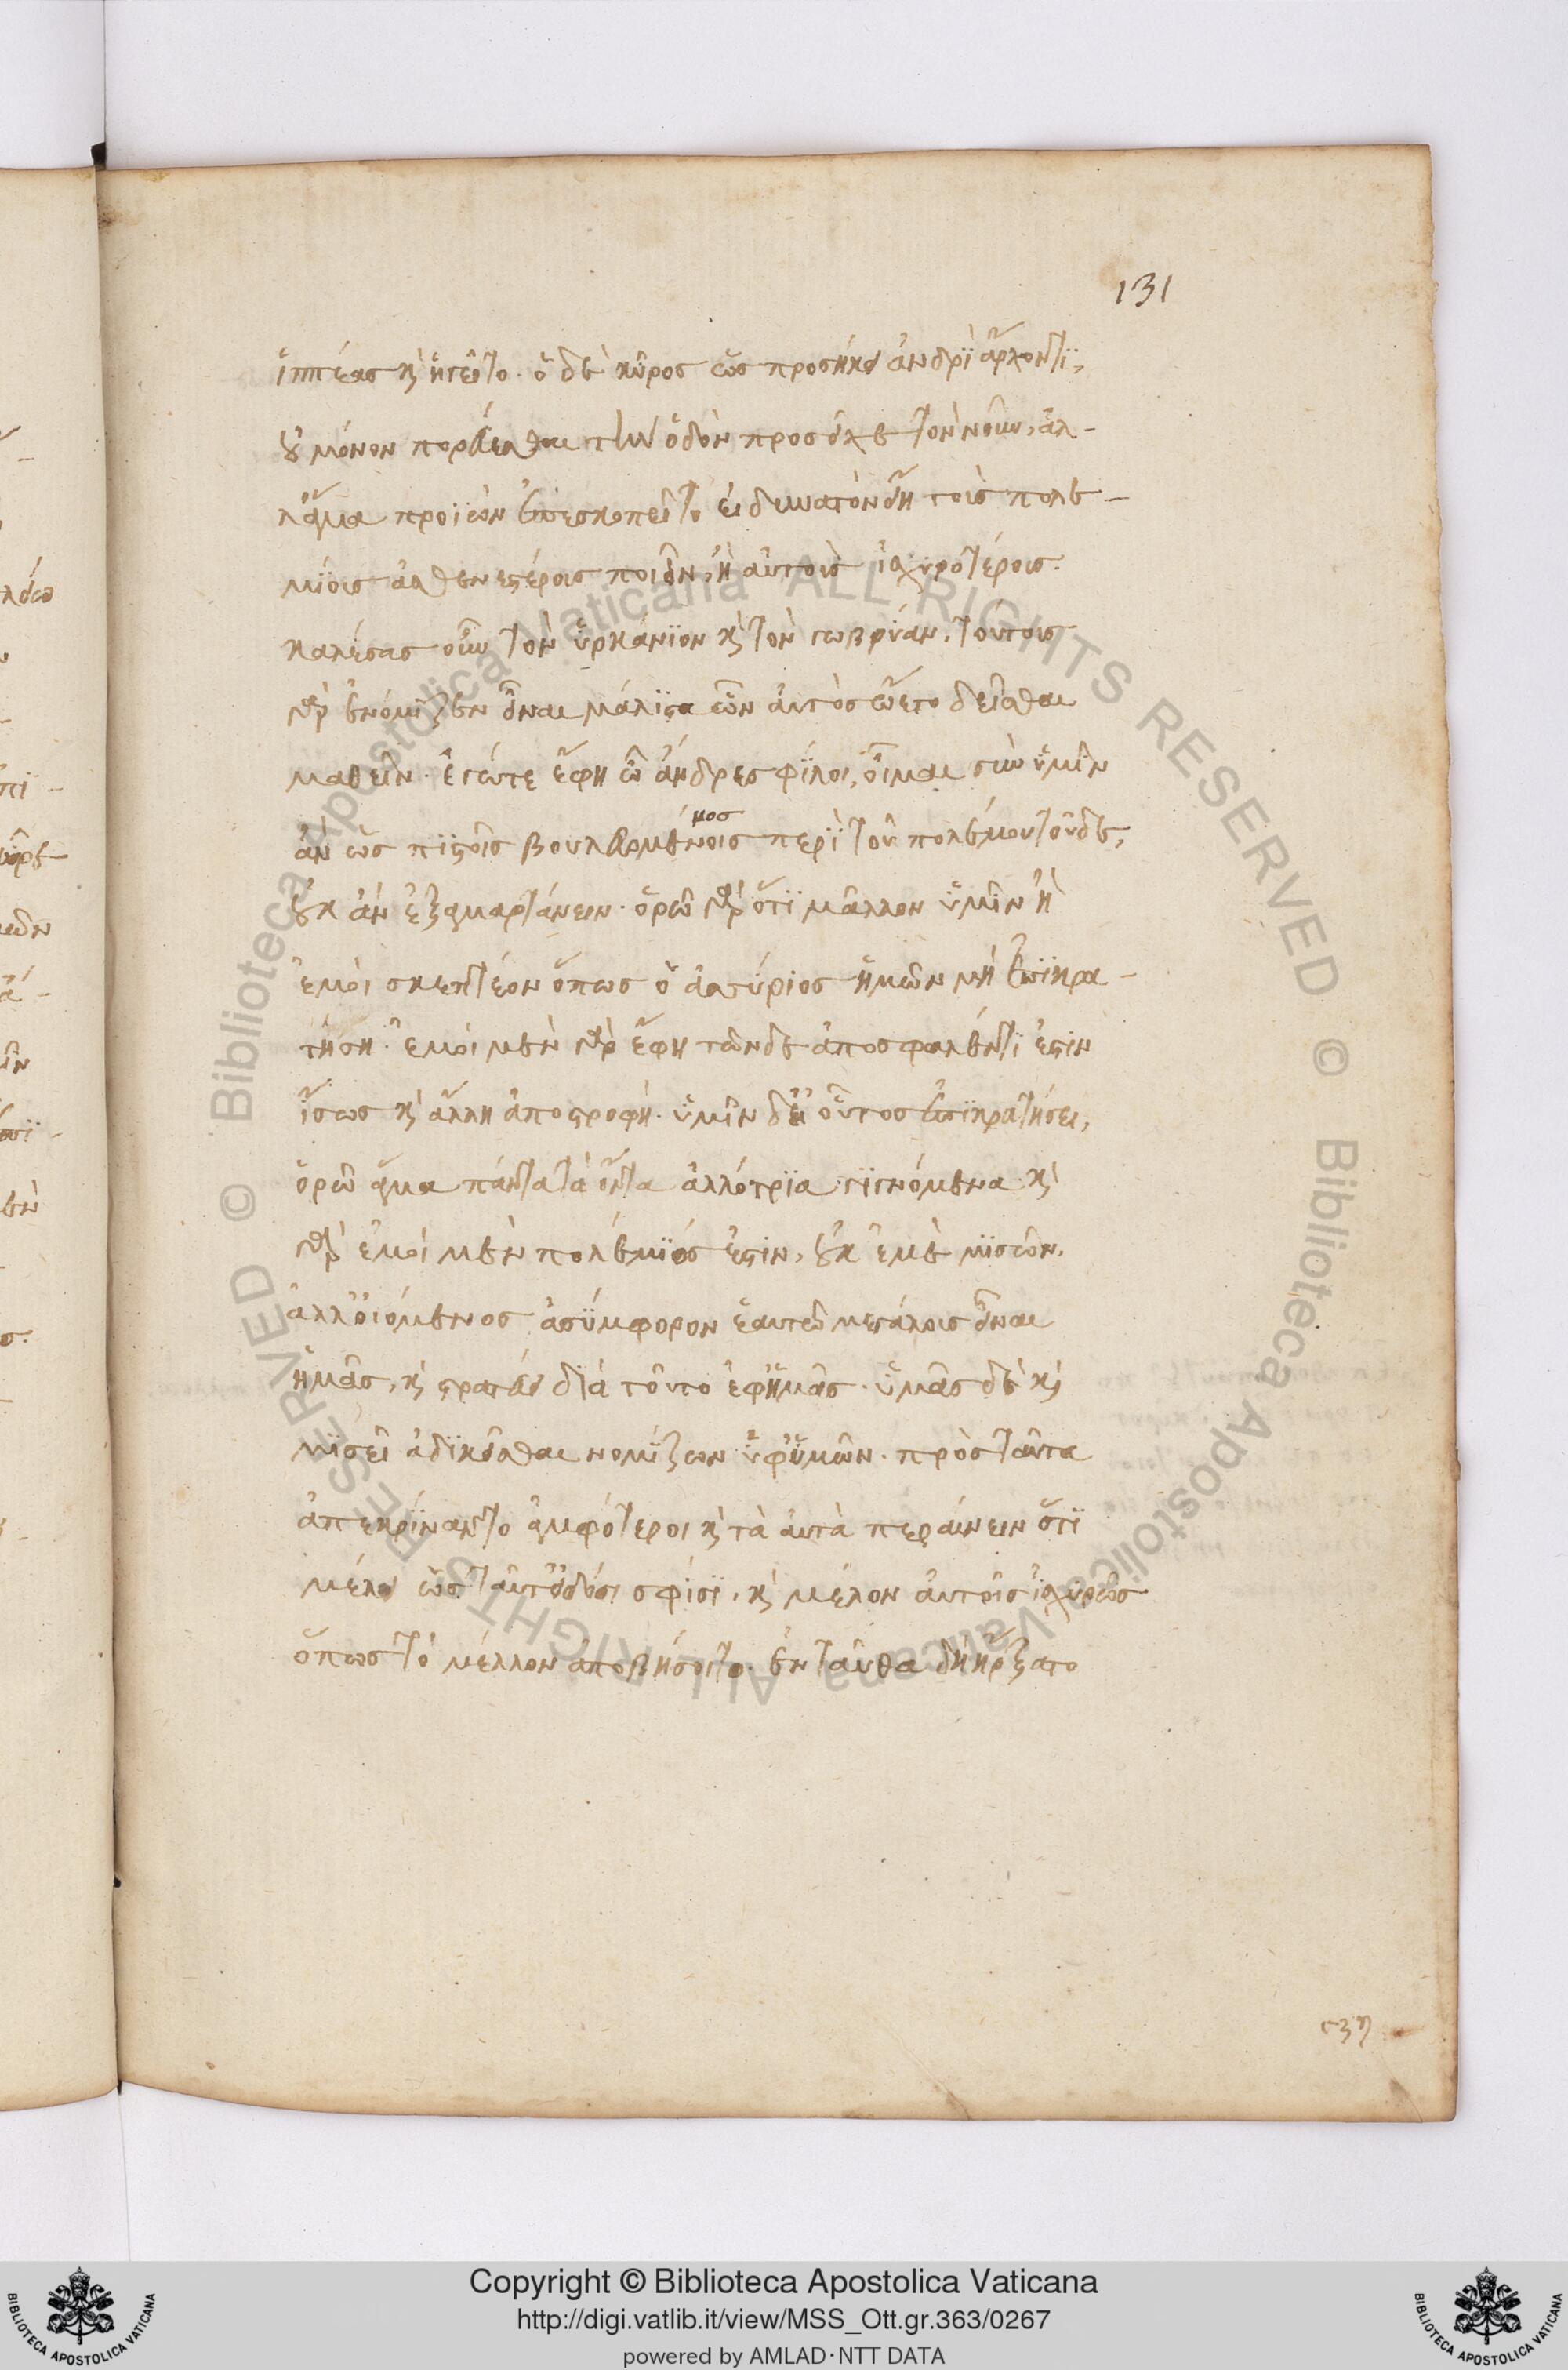 131
ἱππέας κ̀ ἡγεῖτο. ὁ δὲ κῦρος ὡς προσήκει ἀνδρὶ ἄρχοντϊ,
οὐ μόνον πορεύεσθαι τὴν ὁδὸν προσεῖχε τὸν νοῦν, ἀλ-
λ' ἅμα προϊὼν ἐπεσκοπεῖτο εἰ δυνατὸν εἴη τοὺς πολε-
μίους ἀσθενεστέρους ποιεῖν, ἢ αὐτοὺς ἰσχυροτέρους.
καλέσας οὖν τὸν ὑρκάνϊον κ̀ τὸν γωβρύαν, τούτους
γὰρ ἐνόμιζεν εἶναι μάλϊστα ὧν αὐτὸς ᾤετο δεῖσθαι
μαθεῖν. ἐγώ τε ἔφη ὦ ἄνδρες φίλοι, οἶμαι σὺν ὑμῖν
ἂν ὡς πϊστοῖς βουλευόμενοις περὶ τοῦ πολέμου τοῦδε,
μος
οὐκ ἂν ἐξαμαρτάνειν. ὁρῶ γὰρ ὅτϊ μᾶλλον ὑμῖν ἢ
ἐμοὶ σκεπτέον ὅπως ὁ ἀσσύριος ἡμῶν μὴ ἐπϊκρα-
τήση. ἐμοὶ μὲν γὰρ ἔφη τῶνδε ἀποσφαλέντϊ ἔστιν
ἴσως κ̀ ἄλλη ἀποστροφή. ὑμῖν δ' εἰ οὗτος ἐπϊκρατήσει,
ὁρῶ ἅμα πάντα τὰ ὄντα ἀλλότρϊα γϊγνόμενα. κ̀
γὰρ ἐμοὶ μὲν πολέμϊός ἐστιν, οὐκ ἐμὲ μϊσῶν.
ἀλλ' οἰόμενος ἀσύμφορον ἑαυτῶ μεγάλους εἶναι
ἡμᾶς, κ̀ στρατεύει διὰ τοῦτο ἐφ' ἡμᾶς. ὑμᾶς δὲ κ̀
μϊσεῖ ἀδϊκεῖσθαι νομίζων ὑφ' ὑμῶν. πρὸς ταῦτα
ἀπεκρίναντο ἀμφότεροι κ̀ τὰ αὐτὰ περαίνειν ὅτϊ
μέλει ὡς ταῦτ' εἰδόσι σφίσϊ, κ̀ μέλον αὐτοῖς ἰσχυρῶς
ὅπως τὸ μέλλον ἀποβήσοιτο. ἐνταῦθα δὴ ἤρξατο
Copyright © Biblioteca Apostolica Vaticana
http://digi.vatlib.it/view/MSS_Ott.gr.363/0267
powered by AMLAD·NTT DATA